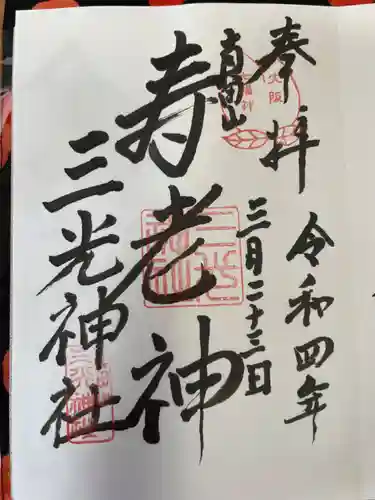 奉拝
令和四年
真田山
三月二十三日
寿老神
三光神社
大阪